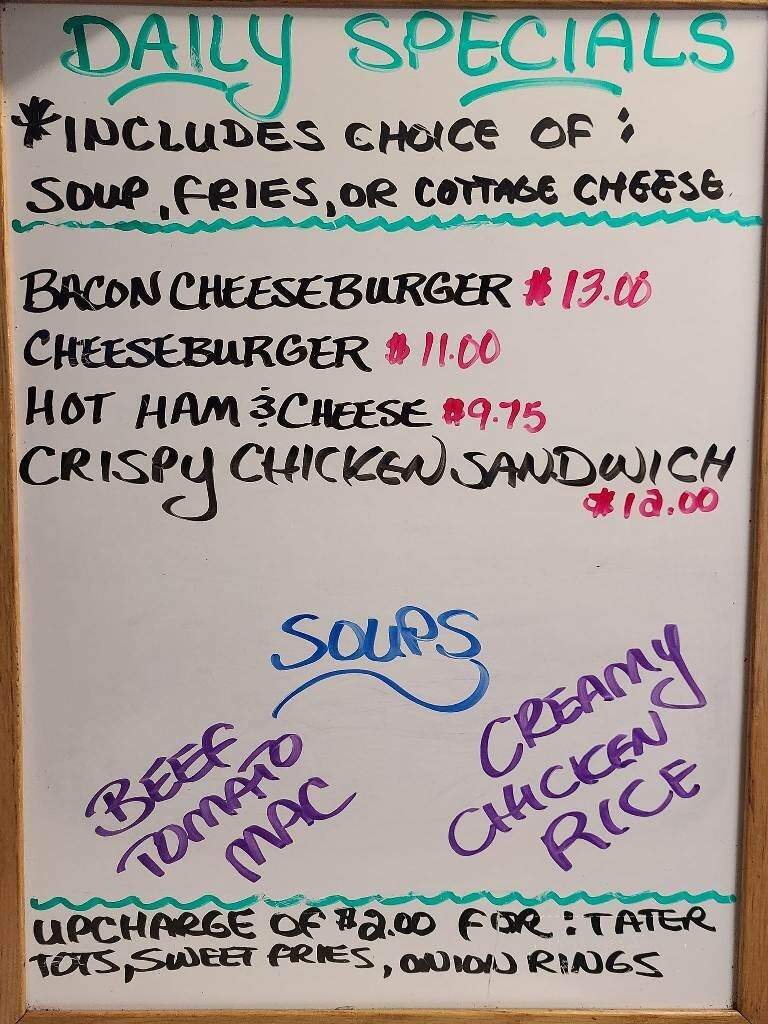 DAILY SPECIALS
*INCLUDES CHOICE OF:
SOUP, FRIES, OR COTTAGE CHEESE
BACON CHEESEBURGER $13.00
CHEESEBURGER $11.00
HOT HAM & CHEESE $9.75
CRISPY CHICKEN SANDWICH
$12.00
SOUPS
BEEF
TOMATO
MAC
CREAMY
CHICKEN
RICE
UPCHARGE OF $2.00 FOR: TATER
TOTS, SWEET FRIES, ONION RINGS